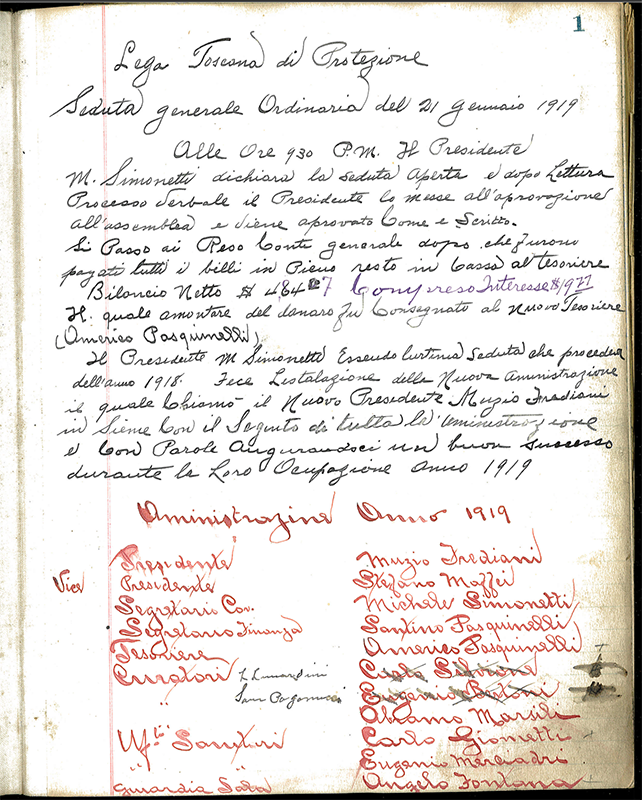 1
Lega Toscana di Protezione
Seduta generale Ordinaria del 21 Gennaio 1919
Alle Ore 930 P.M. Il Presidente
M. Simonetti dichiara la seduta Aperta e dopo Lettura
Processo verbale il Presidente lo messe all'aprovazione
all'assemblea e viene aprovato Come e Scritto.
Si Passo ai Reso Conte generale dopo che furono
pagati tutti i billi in Pieno resto in Cassa al tesoriere
Bilancio Netto $ 484 Compreso Interesse
Il quale amontare del danaro fu Consegnato al Nuovo Tesoriere
(Americo Pasquinelli)
Il Presidente M Simonetti Essendo l'urtima Seduta che procedeva
dell'anno 1918. Fece L'estalazione della Nuova Aministrazione
il quale Chiamò il Nuovo Presidente Muzio Frediani
in Sieme Con il Seguito di tutta la Aministrazione
e Con Parole Augurandoci un buon Successo
durante la Loro Ocupazione Anno 1919
Aministrazine Anno 1919
Presidente Muzio Frediani
Vice Presidente Stefano Maffei
Segretario Cor. Michele Simonetti
Segretario Finanza Santino Pasquinelli
Tesoriere Americo Pasquinelli
Curatori Carlo
" Eugenio Bertoni
Abramo Marsili
Carlo Giometti
Eugenio Merciadri
Guardia Sala Angelo Fontana